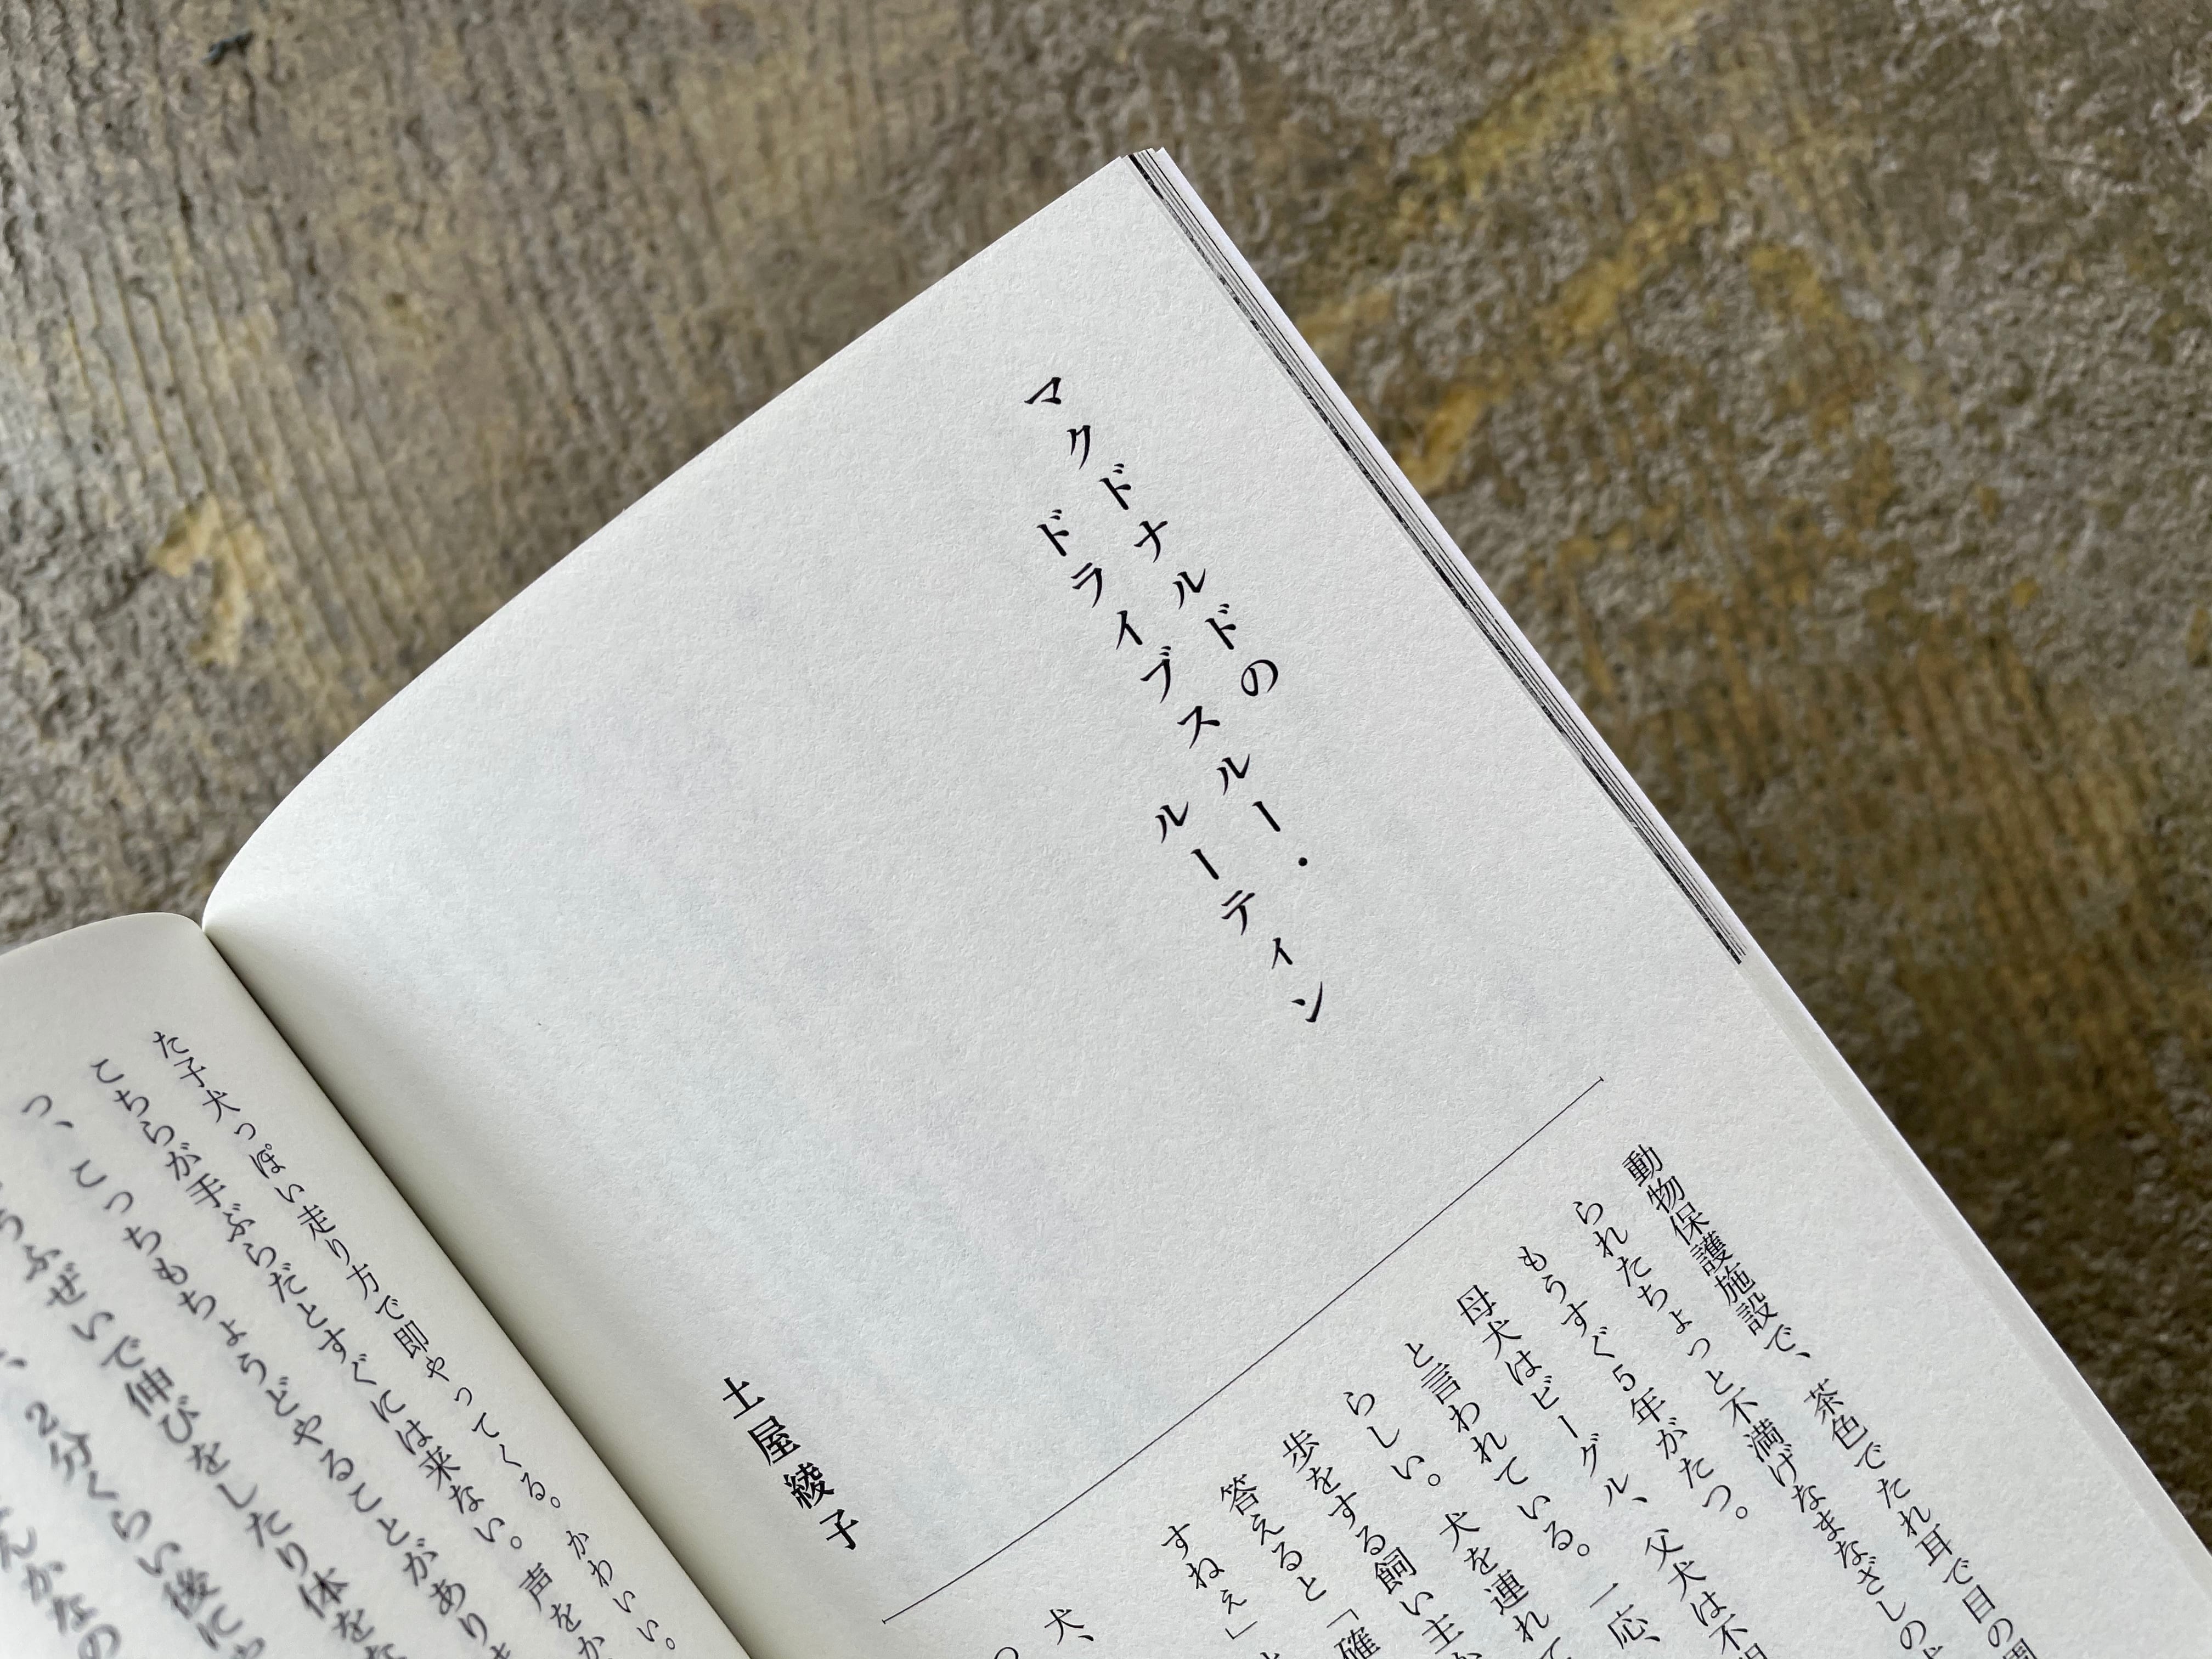 マクドナルドの
ドライブスルー・
ルーティン
土屋綾子
動物保護施設で、茶色でたれ耳で目の周
られたちょっと不満げなまなざしの
もうすぐ5年がたつ。
母犬はビーグル、父犬は不
と言われている。一応、
らしい。犬を連れて
歩をする飼い主か
答えると「確
すねぇ」
犬、
た子犬っぽい走り方で即やってくる。かわいい。
こちらが手ぶらだとすぐには来ない。声をか
っ、こっちもちょうどやることがあり
うふぜいで伸びをしたり体を
、2分くらい後に
んかなの